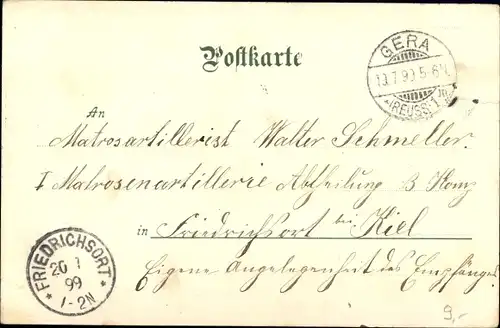 Postkarte
GERA
19.7.99.5-6N.
(REUSS)
An
Matrosartillerist Walter Schmeller.
I Matrosenartillerie Abtheilung 3 Komp
in Friedrichsort bei Kiel
Eigene Angelegenheit des Empfängers
* FRIEDRICHSORT *
20 7
99
1-2N
9,-